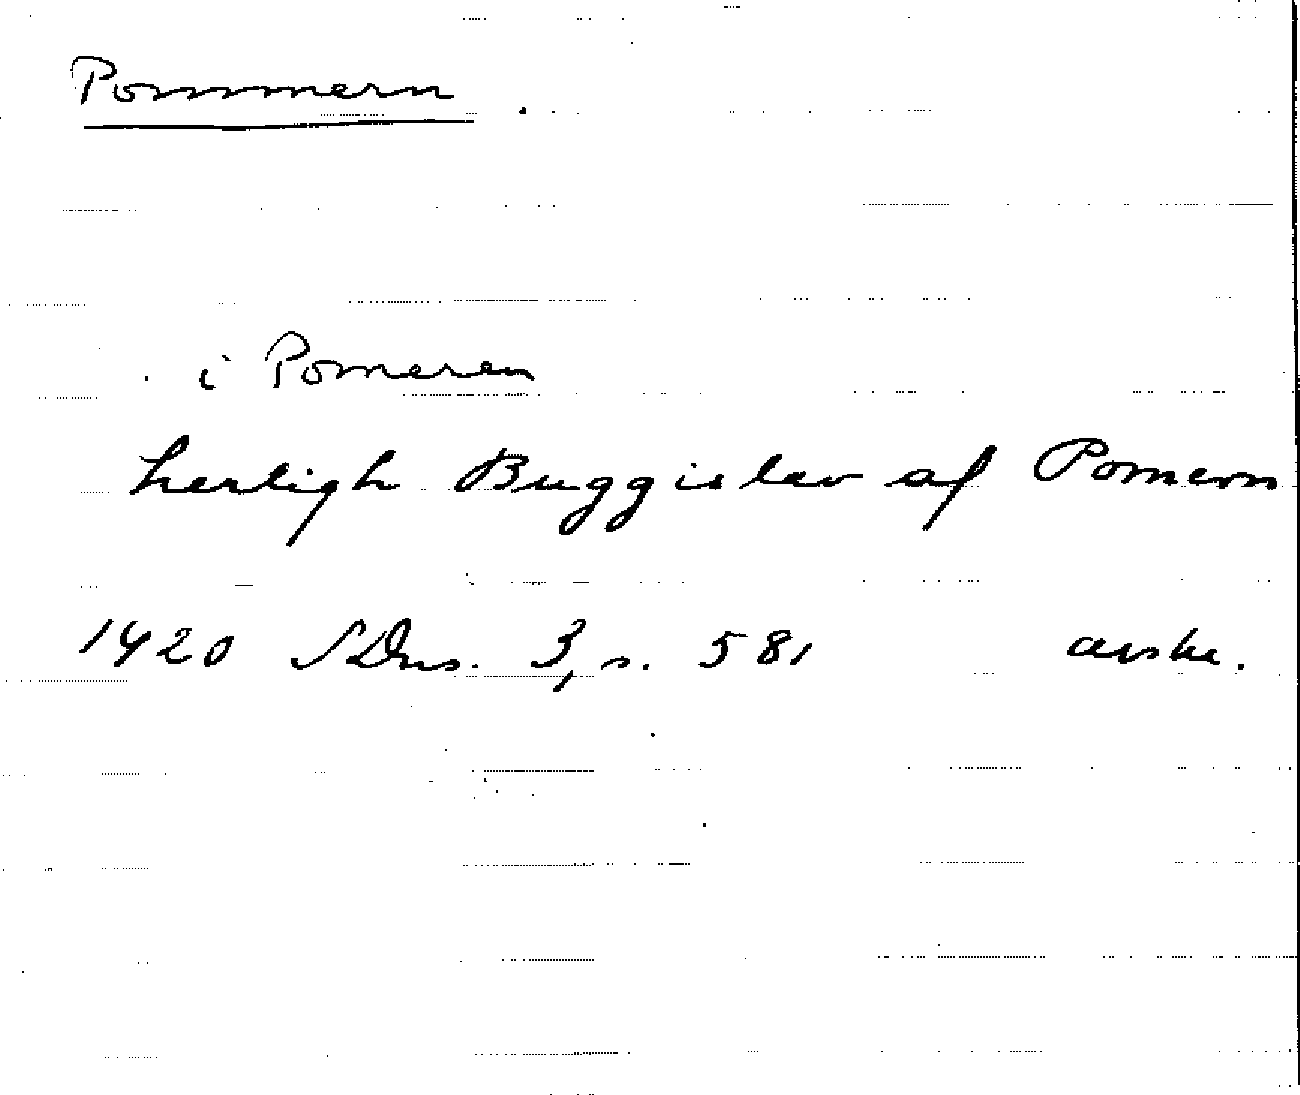 Pommern
i Pomeren
hertigh Buggislav af Pomern
1420 SDns. 3, s. 581 avskr.